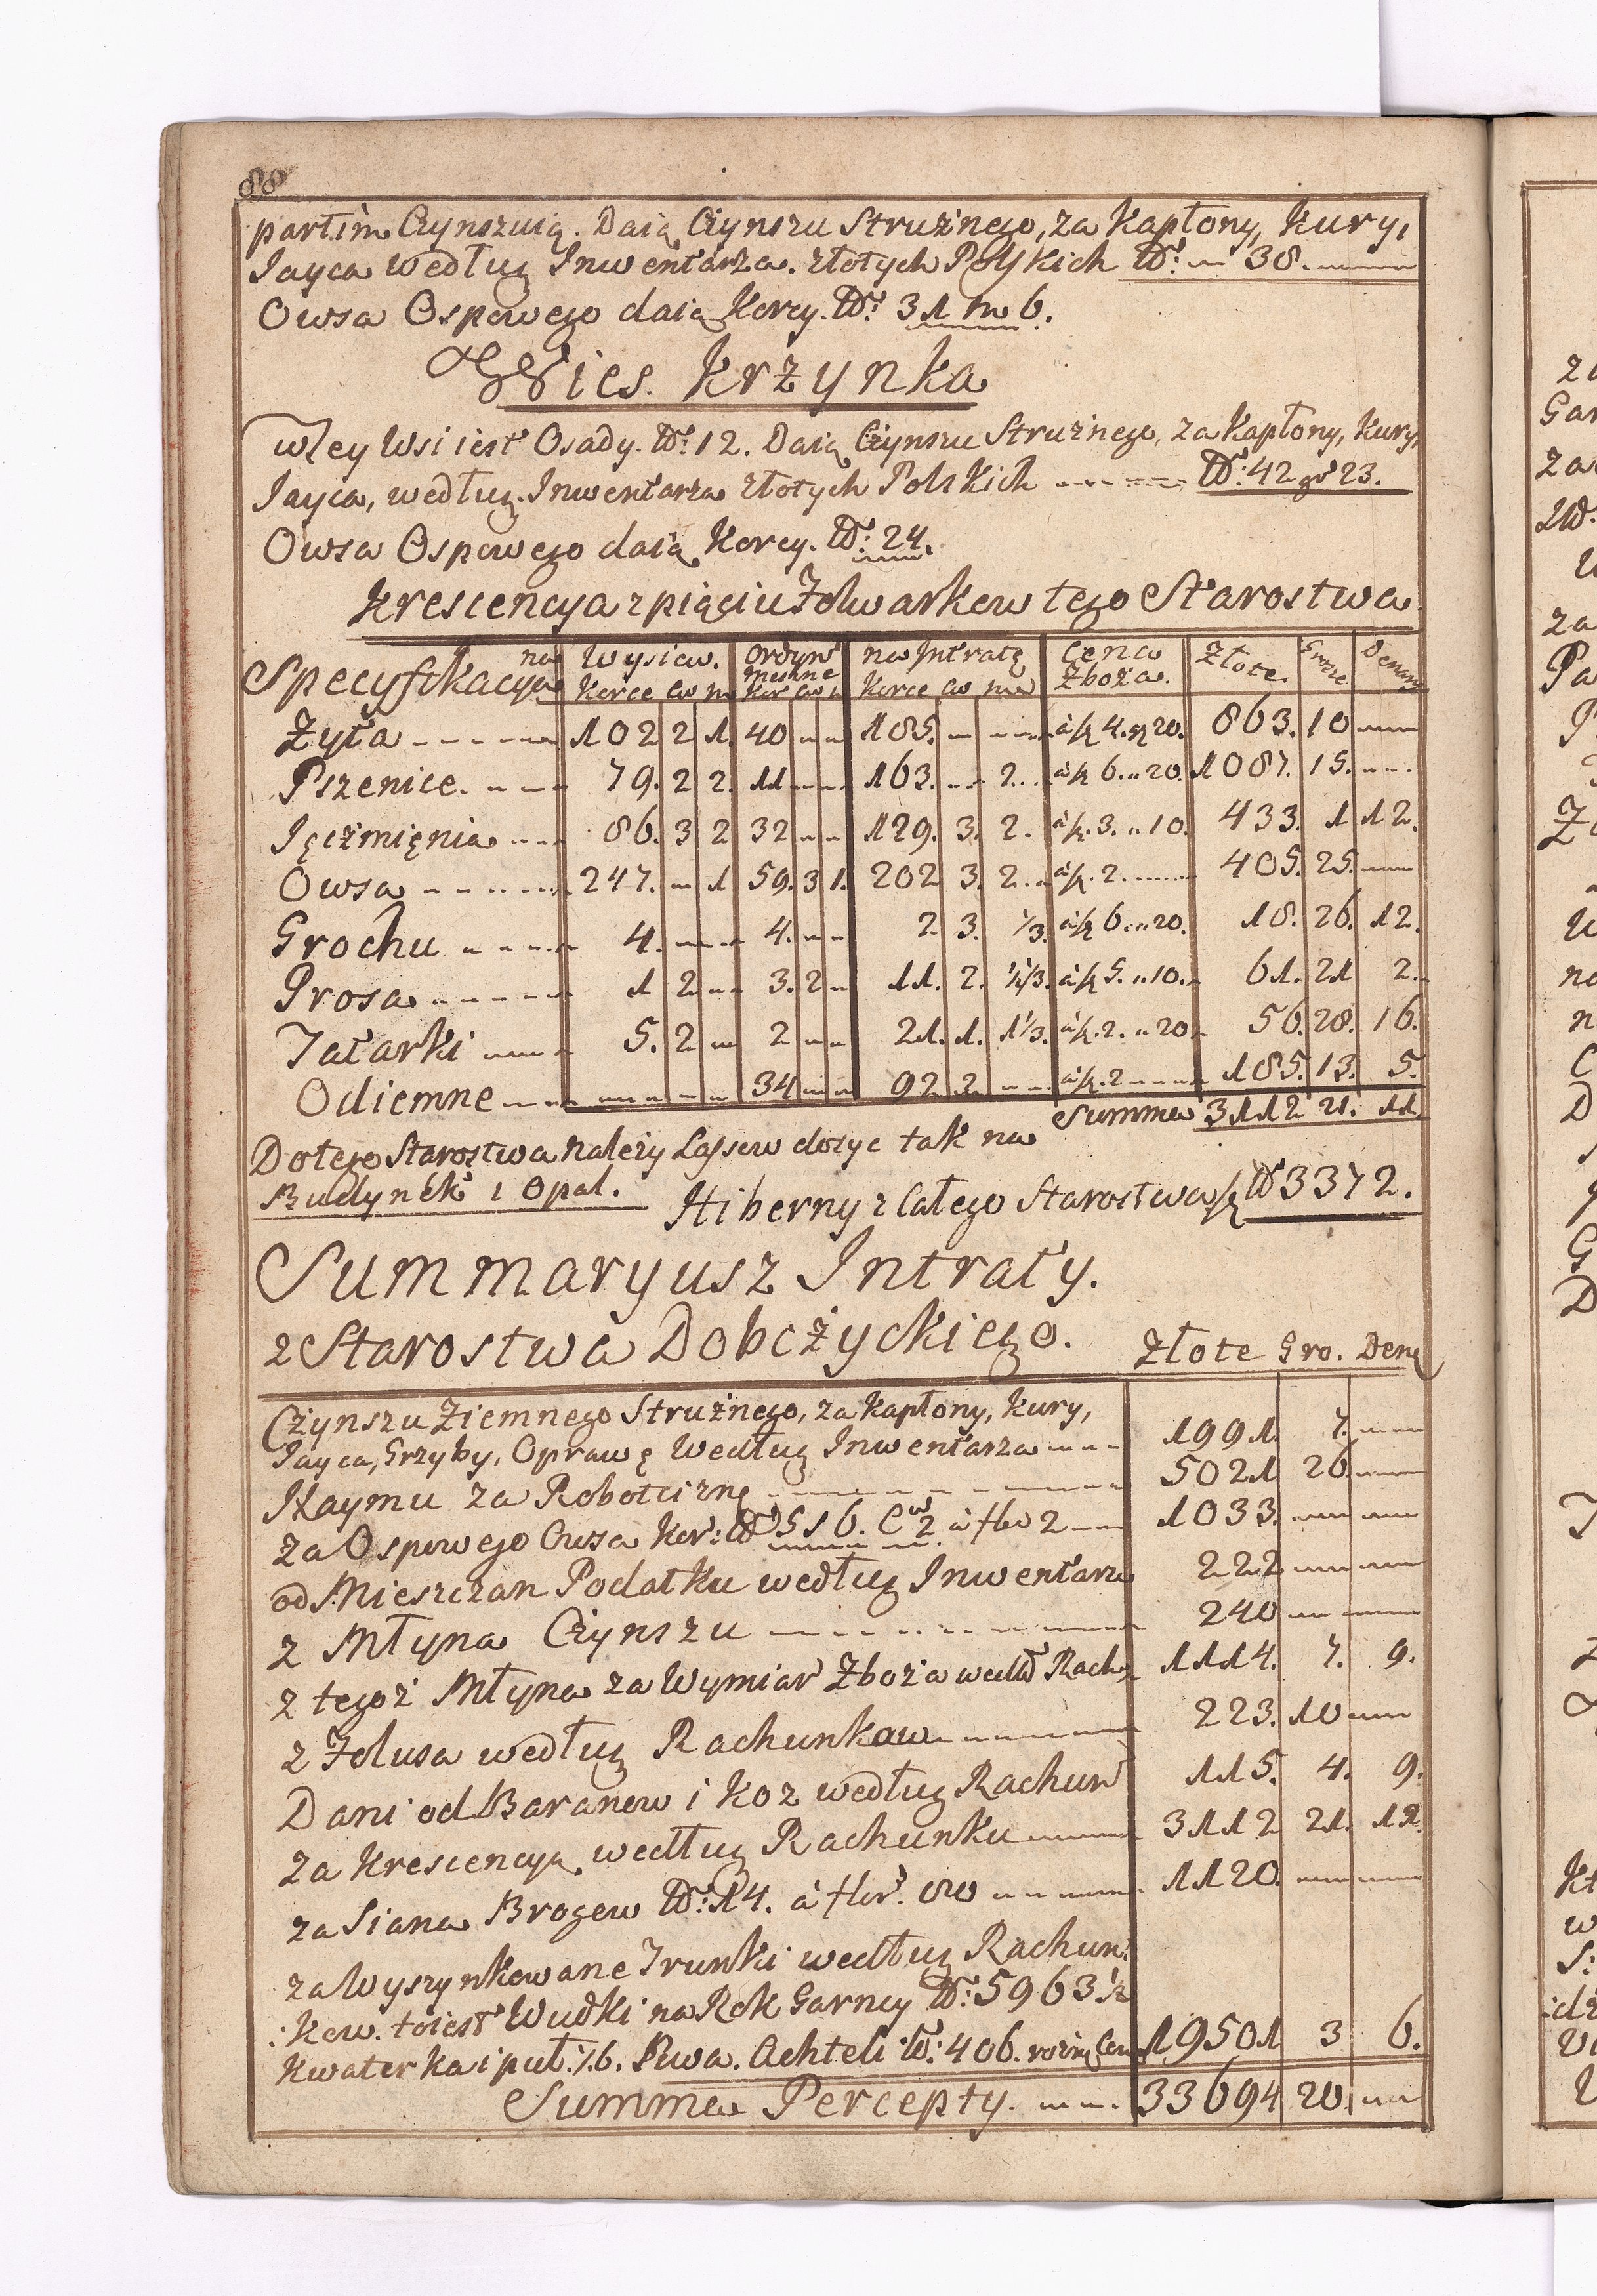 88
partim Czynszuią. Daią Czynszu Strużnego, za Kapłony, Kury,
Jayca według Inwentarza. złotych Polskich No: 38.
Owsa Ospowego daią Korcy. No: 31 m 6.
Wies. Krzynka
w tey Wsi iest Osady. No: 12. Daią Czynszu Strużnego, za Kapłony, Kury,
Jayca, według Inwentarza złotych Polskich No: 42 gr 23.
Owsa Ospowego daią Korcy. No: 24.
Krescencya z piąciu Folwarkow tego Starostwa
Specyfikacya na Wysiew. Ordyn meszne na Intratę Cena Zboża. Złote. Grosze Denary
Korce Cw m Kor Cw m Korce Cw me
Żyta 102 2 1. 40 185. à f 4. g 20. 863. 10
Pszenice. 79. 2 2. 11 163. 2. à f 6. " 20. 1087. 15.
Jęczmięnia 86. 3 2 32 129. 3. 2. à f. 3. " 10. 433. 1 12.
Owsa 247. 1 59. 3 1. 202 3. 2. à f. 2. 405. 25.
Grochu 4. 4. 2 3. 1/3. à f 6. " 20. 18. 26. 12.
Prosa 1 2 3. 2 11. 2. 1/2 1/3. à f 5. " 10. 61. 21 2.
Tatarki 5. 2 2 21. 1. 1 1/3. à f. 2. " 20 56. 28. 16.
Odiemne 34 92 2 à f. 2 185. 13. 5.
Summa 3112 21. 11.
Do tego Starostwa należy Lassow dosyc tak na
Budynek i Opał.
Hiberny z Całego Starostwa f No 3372.
Summaryusz Intraty.
z Starostwa Dobczyckiego. Złote Gro. Den
Czynszu Ziemnego Strużnego, za Kapłony, Kury,
Jayca, Grzyby, Oprawę według Inwentarza 1991. 7.
Naymu za Robociznę 5021 26.
za Ospowego Owsa Kor: No 516. Cw 2 à flor 2 1033.
od Mieszczan Podatku według Inwentarza 222
z Młyna Czynszu 240
z tegoż Młyna za Wymiar Zboża wedłu Rach 1114. 7. 9.
z Folusa według Rachunkow 223. 10
Dani od Baranow i Koz według Rachun 115. 4. 9.
za Krescencyą według Rachunku 3112 21. 12.
za Siana Brogow No: 14. à flor. 80 1120.
za Wyszynkowane Trunki według Rachun:
:kow. toiest Wudki na Rok Garncy No: 5963 1/2
Kwaterka i puł. /: 6. Piwa. Achteli No: 406. 19501 3 6.
Summa Percepty. 33694 20.